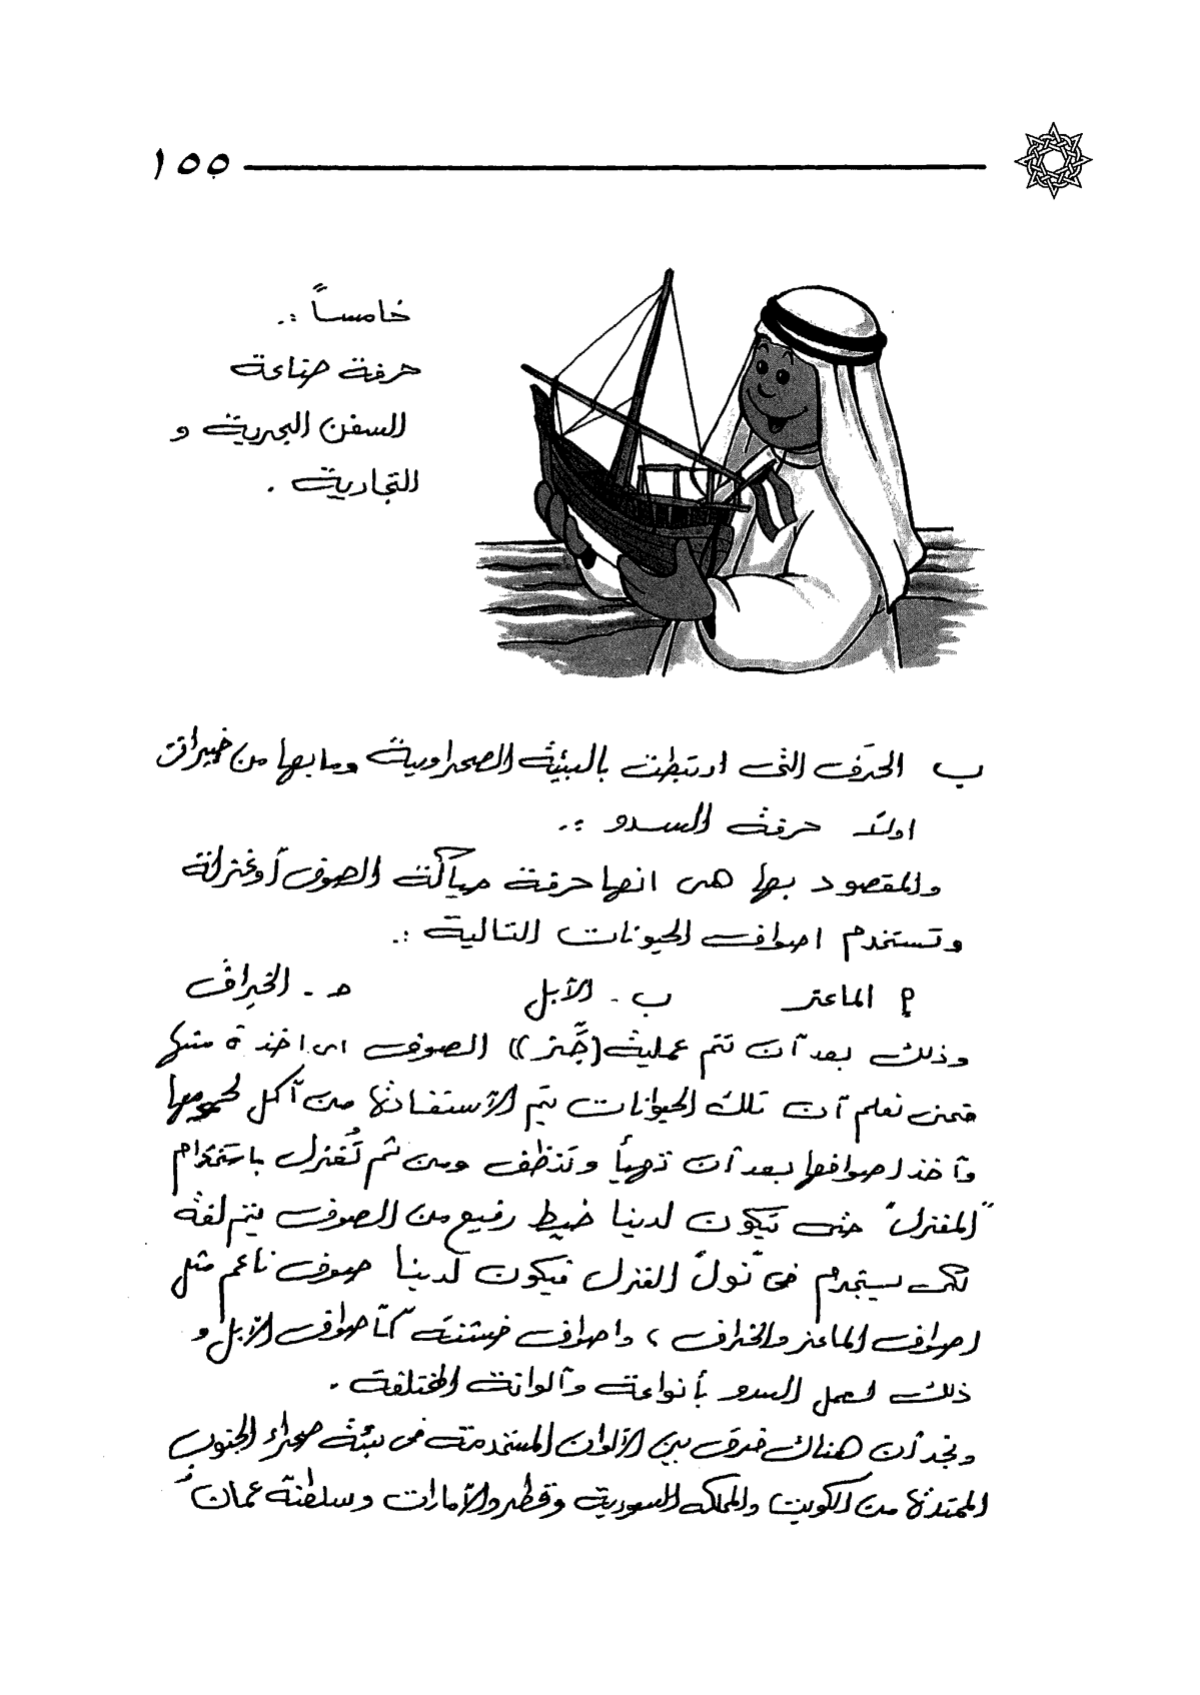 ١٥٥
خامساً :.
حرفة صناعة
السفن البحرية و
التجارية .
ب الحَرف التى ارتبطت بالبيئة الصحراوية ومابها من خيرات
اولاً حرفة السدو :.
والمقصود بها هى انها حرفة حياكة الصوف أوغزلة
وتستخدم اصواف الحيونات التالية :.
أ الماعز ب - الأبل حـ - الخِراف
وذلك بعد آن تتم عملية (جَّز)) الصوف اى اخذة منها
فنحن نعلم آن تلك الحيوانات يتم الأستفادة من آكل لحومها
وآخذ اصوافها بعد آن تهيأ وتنظف ومن ثم تُغزل باستخدام
"المغزل" حتى تيكون لدينا خيط رفيع من الصوف يتم لفة
لكى يستخدم فى "نول" الغزل فيكون لدينا صوف ناعم مثل
اصواف الماعز والخراف ، واصواف خشنة كآصواف الأبل و
ذلك لعمل السدو بأنواعة وآلوانة المختلفة .
ونجد آن هناك فرق بين الألوان المستخدمة فى بيئة صحراء الجنوب
الممتدة من الكويت والمملكه السعودية وقطر والآمارات وسلطنة عمان"